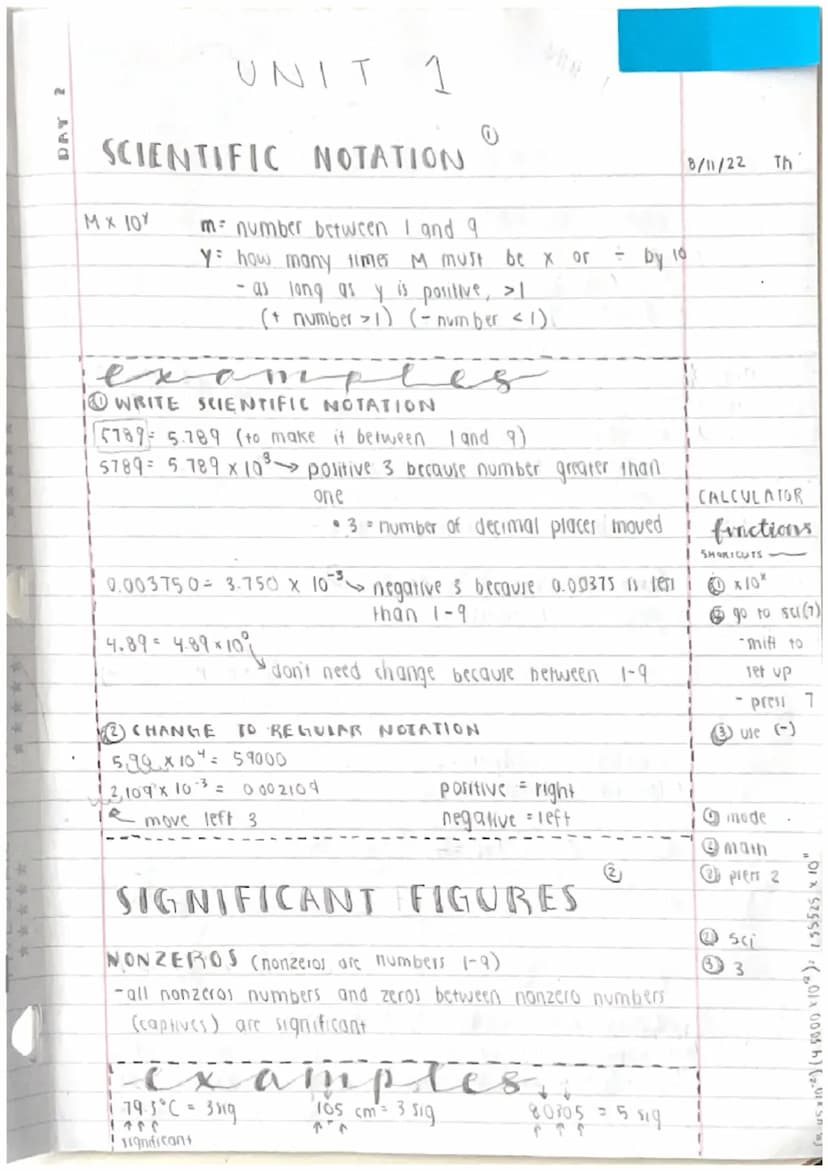 UNIT 1
DAY 2
SCIENTIFIC NOTATION ①
8/11/22 Th
M x 10^y m= number between 1 and 9
y= how many times M must be x or ÷ by 10
- as long as y is positive, >1
(+ number >1) (- number <1)
examples
① WRITE SCIENTIFIC NOTATION
5789= 5.789 (to make it between 1 and 9)
5789= 5.789 x 10^3 → positive 3 because number greater than
one
• 3 = number of decimal places moved
0.003750= 3.750 x 10^-3 → negative 3 because 0.00375 is less
than 1-9
4.89= 4.89 x 10^0
don't need change because between 1-9
② CHANGE TO REGULAR NOTATION
x 10^4= 59000
2.109 x 10^-3 = 0.002109 positive = right
move left 3 negative = left
CALCULATOR
functions
SHORTCUTS
① x10^x
② go to sci(7)
-shift to
set up
- press 7
③ use (-)
① mode
② main
③ press 2
② sci
③ 3
SIGNIFICANT FIGURES ②
NONZEROS (nonzeros are numbers 1-9)
-all nonzeros numbers and zeros between nonzero numbers
(captives) are significant
examples
79.5°C = 3 sig 105 cm = 3 sig 80305 = 5 sig
significant